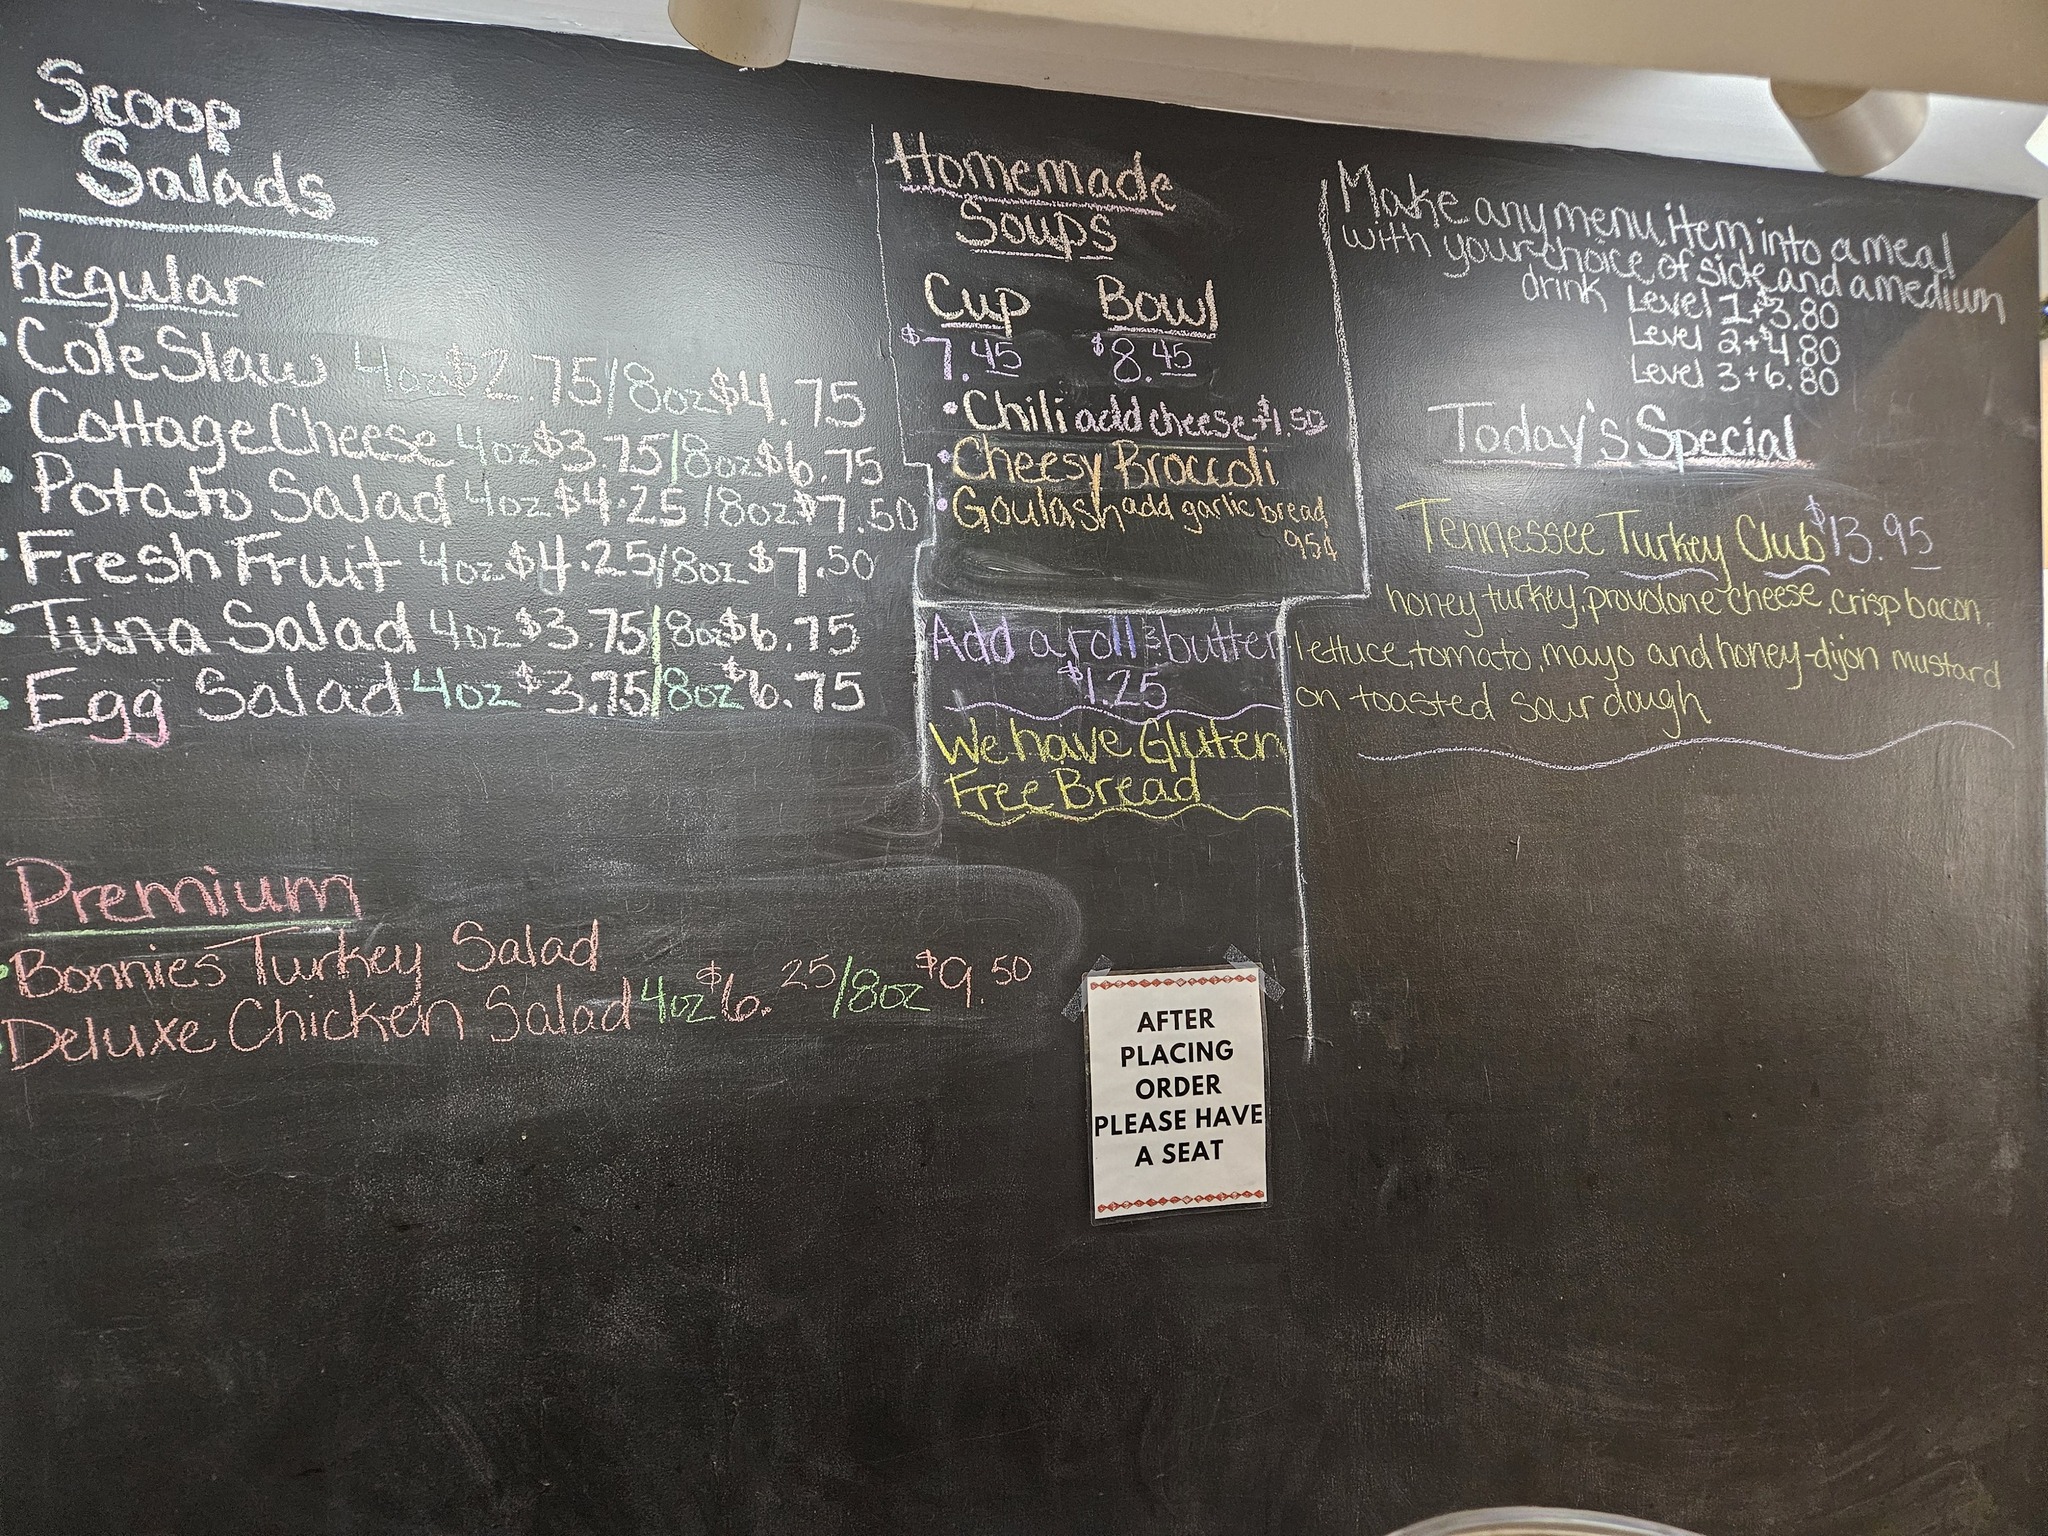 Scoop
Salads
Regular
Cole Slaw 4oz $2.75/8oz $4.75
Cottage Cheese 4oz $3.75/8oz $6.75
Potato Salad 4oz $4.25/8oz $7.50
Fresh Fruit 4oz $4.25/8oz $7.50
Tuna Salad 4oz $3.75/8oz $6.75
Egg Salad 4oz $3.75/8oz $6.75
Premium
Bonnies Turkey Salad
Deluxe Chicken Salad 4oz $6.25/8oz $9.50
Homemade
Soups
Cup Bowl
$7.45 $8.45
Chili add cheese +$1.50
Cheesy Broccoli
Goulash add garlic bread
95¢
Add a roll & butter
$1.25
We have Gluten
Free Bread
AFTER
PLACING
ORDER
PLEASE HAVE
A SEAT
Make any menu item into a meal
with your choice of side and a medium
drink Level 1 + $3.80
Level 2 + $4.80
Level 3 + 6.80
Today's Special
Tennessee Turkey Club $13.95
honey turkey, provolone cheese, crisp bacon,
lettuce, tomato, mayo and honey-dijon mustard
on toasted sour dough